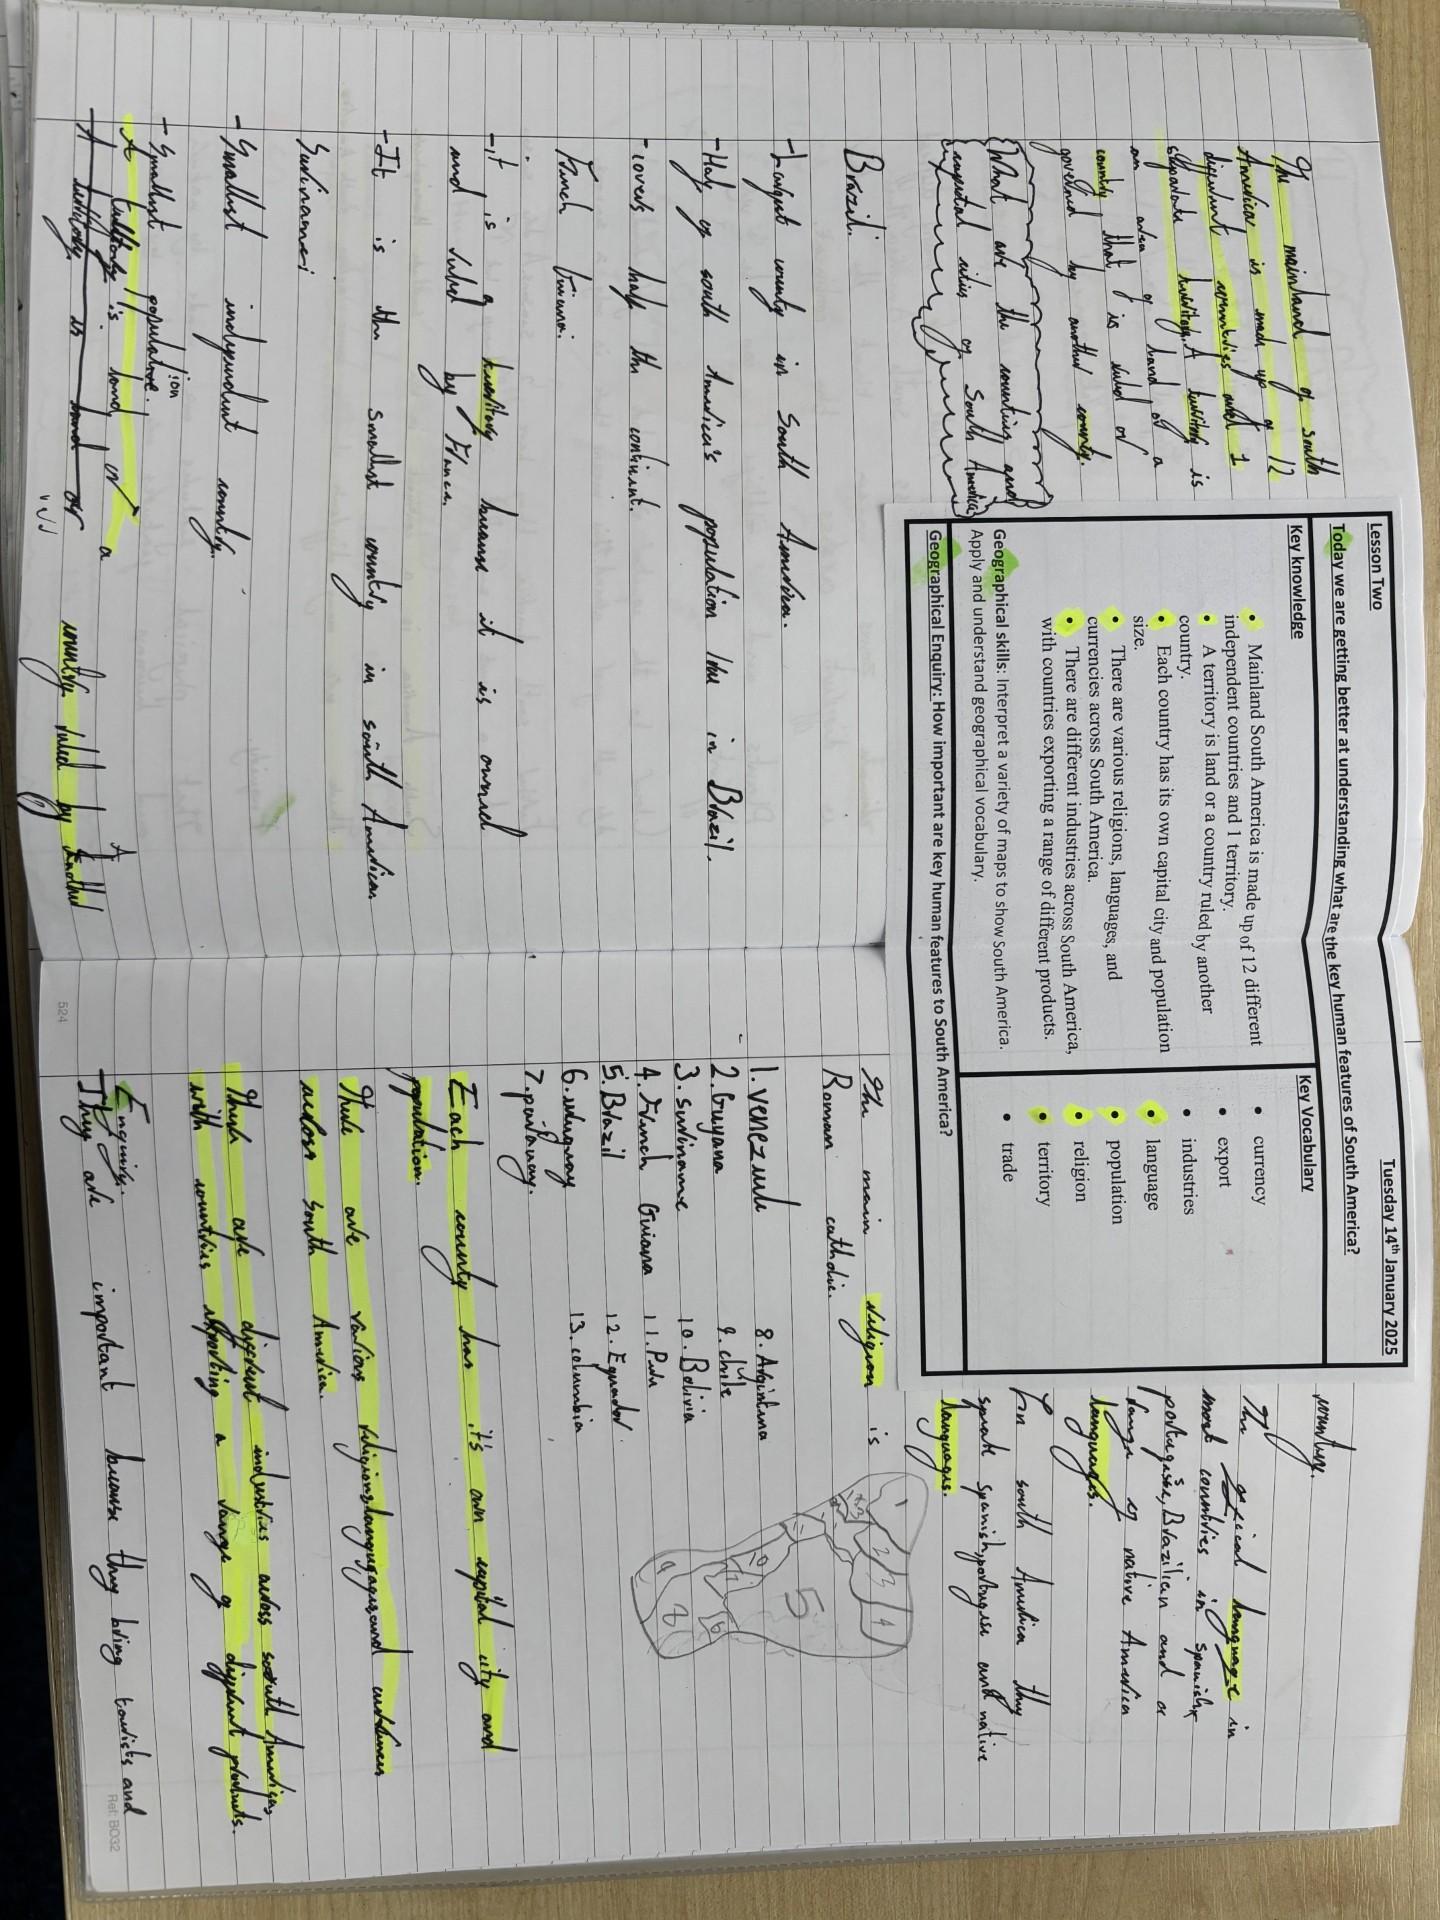 Lesson Two
Tuesday 14th January 2025
Today we are getting better at understanding what are the key human features of South America?
Key knowledge
• Mainland South America is made up of 12 different
independent countries and 1 territory.
• A territory is land or a country ruled by another
country.
• Each country has its own capital city and population
size.
• There are various religions, languages, and
currencies across South America.
• There are different industries across South America,
with countries exporting a range of different products.
Key Vocabulary
• currency
• export
• industries
• language
• population
• religion
• territory
• trade
Geographical skills: Interpret a variety of maps to show South America.
Apply and understand geographical vocabulary.
Geographical Enquiry: How important are key human features to South America?
The mainland of south
America is made up of 12
different countries and 1
seperate territory. A territory is
an area of land of a
country that is ruled or
governed by another county.
What are the counting and
captial cities of South America?
Brazil:
- Largest county in South America.
- Half of south America's population live in Brazil.
- covers half the continent.
French Guiana:
- it is a territory because it is owned
and ruled by France.
- It is the smallest country in south American
Suriname:
- Smallest independent country.
- Smallest population.
A territory is land or a country ruled by Another
A territory is land or
country.
The offical language in
most countries in spanish,
portugese, Brazilian and or
range of native America
languages.
In south America they
speak spanish, portugese and native
languages.
The main religion is
Roman catholic.
1. Venezuele
2. Guyana
3. suriname
4. French Guiana
5. Brazil
6. urhguay
7. paraguay.
8. Argintina
9. chile
10. Bolivia
11. Peru
12. Equador.
13. columbia
1
2
3
4
5
6
8
9
10
Each county has it's own capital city and
population.
There are various religions, languages and
across South America.
There are different industries across south America,
with countries exporting a range of different products.
Enquiry.
They are important because they bring tourists and
524
Ref: BO32